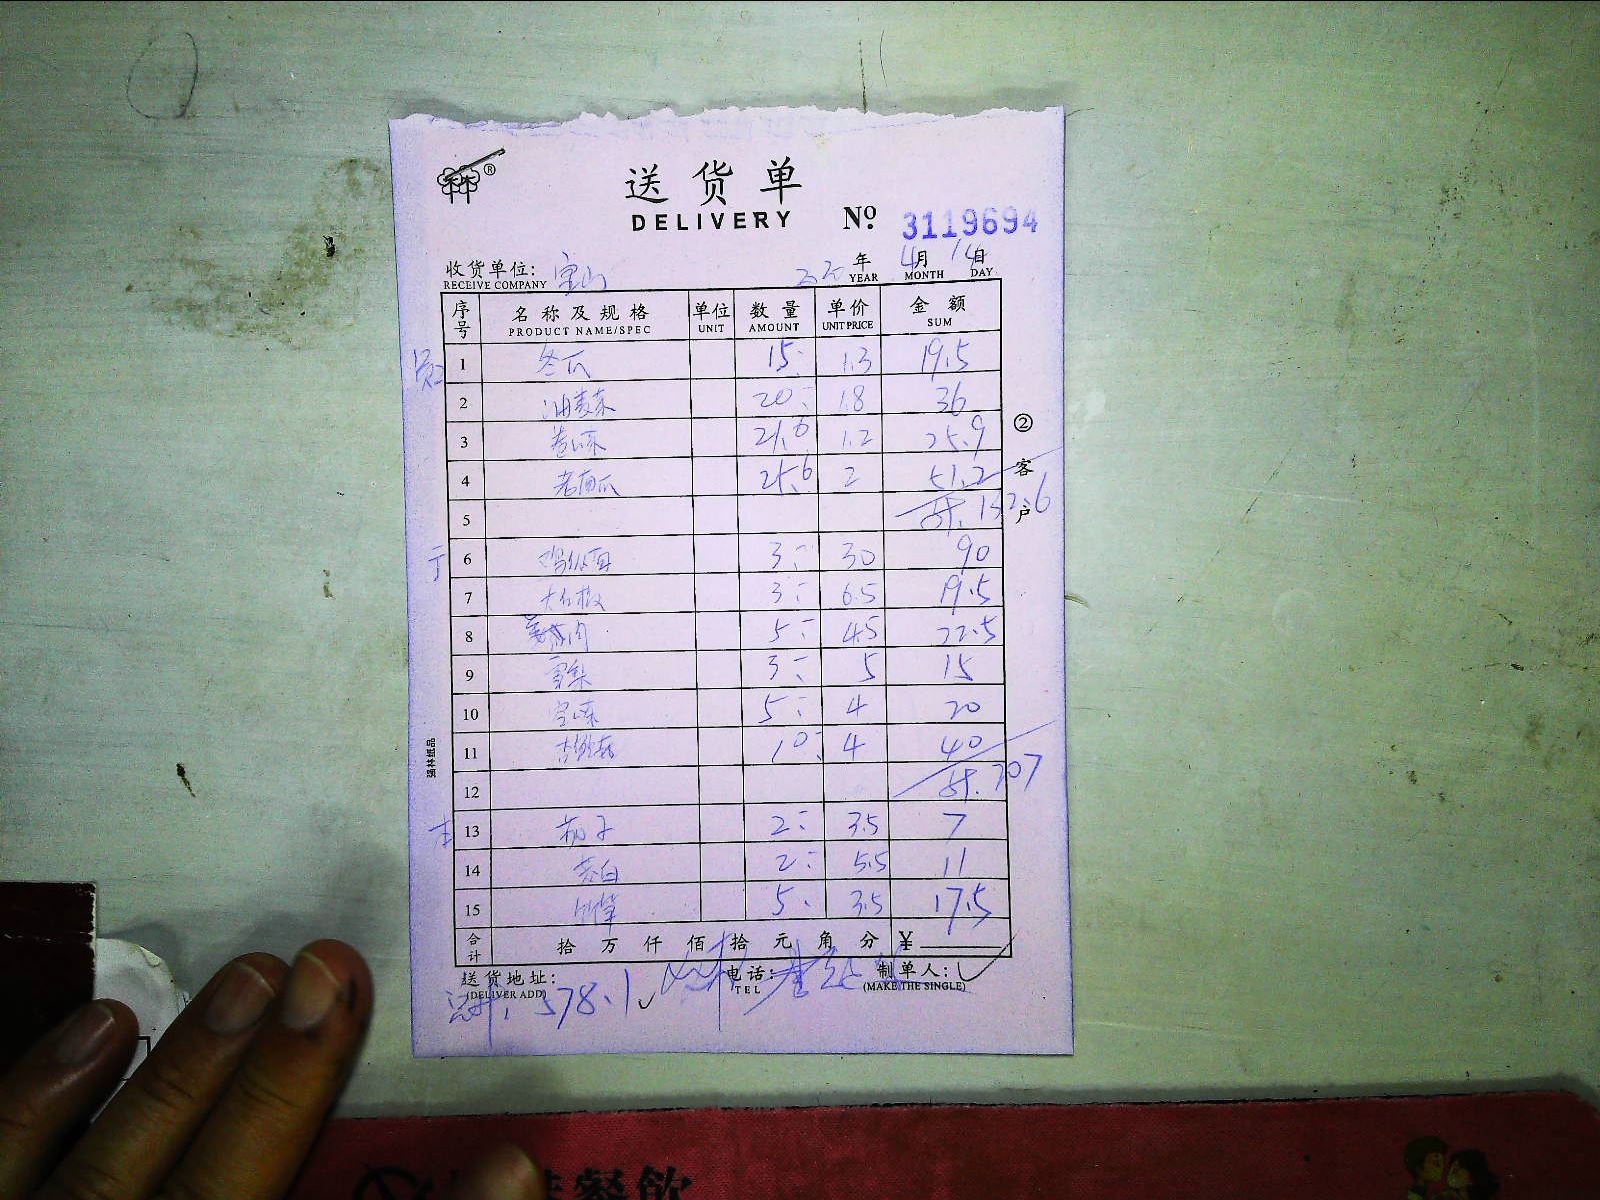 送货单
DELIVERY
№ 3119694
收货单位: 宝山 年 4月 14日
RECEIVE COMPANY YEAR MONTH DAY
序号 名称及规格 单位 数量 单价 金额
PRODUCT NAME/SPEC UNIT AMOUNT UNIT PRICE SUM
1 冬瓜 15 1.3 19.5
2 油麦菜 20 1.8 36
3 21.6 1.2 25.9
4 老南瓜 25.6 2 51.2
5 132.6
6 3 30 90
7 大红椒 3 6.5 19.5
8 5 4.5 22.5
9 雪梨 3 5 15
10 5 4 20
11 10 4 40
12 207
13 茄子 2 3.5 7
14 2 5.5 11
15 5 3.5 17.5
合计 拾 万 仟 佰 拾 元 角 分 ¥
送货地址: 电话: 制单人:
(DELIVER ADD) TEL (MAKE THE SINGLE)
578.1
② 客户
强林纸品
餐飲